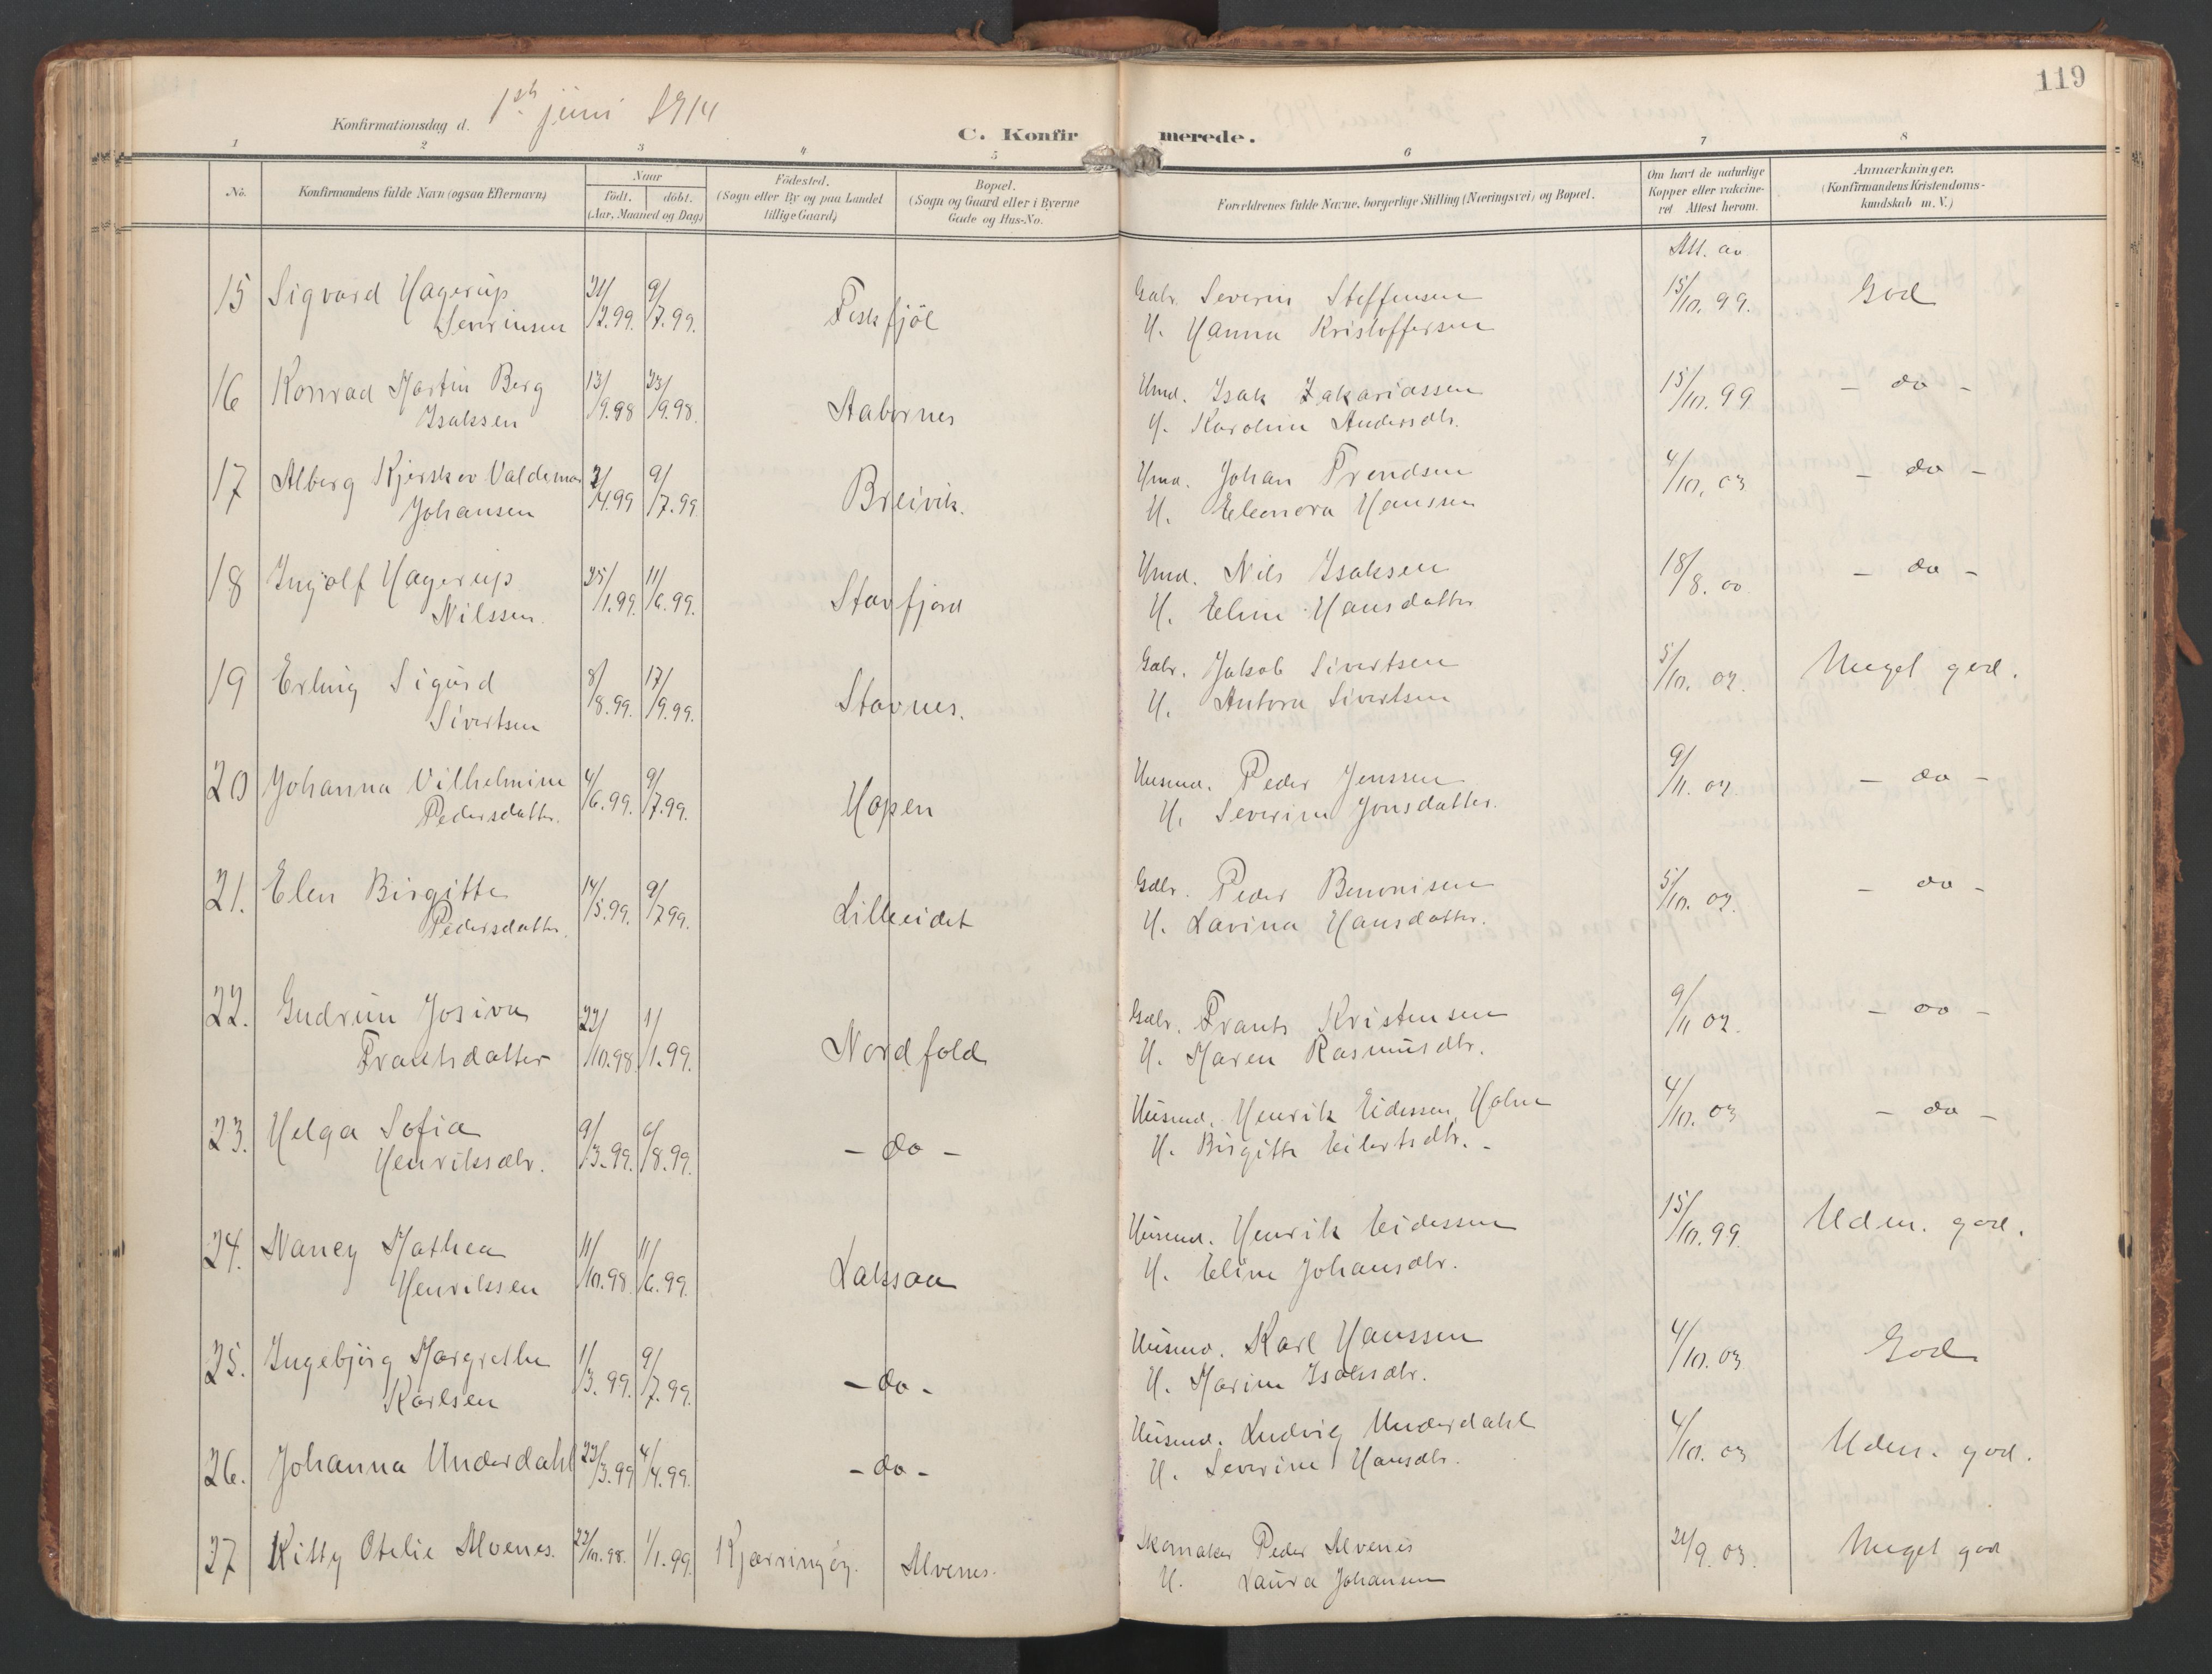 119
Konfirmationsdag d. 1st juni 1914
C. Konfirmerede.
1 2 3 4 5 6 7 8
No.
Konfirmandens fulde Navn (ogsaa Efternavn)
Naar
født. døbt.
(Aar, Maaned og Dag)
Fødested.
(Sogn eller By og paa Landet
tillige Gaard)
Bopæl.
(Sogn og Gaard eller i Byerne
Gade og Hus-No.
Forældrenes fulde Navne, borgerlige Stilling (Næringsvei) og Bopæl.
Om havt de naturlige
Kopper eller vakcine-
ret Attest herom.
Anmærkninger.
(Konfirmandens Kristendoms-
kundskab m. V.)
Att. av
15 Sigvard Hagerup 9/7.99. Gbr. Severin Steffensen 15/10. 99. God
Severinsen H. Hanna Kristoffersen
16 Konrad Martin Berg 13/9.98 23/9.98. Hmd. Isak Zakariassen 15/10. 99 - do -
Isaksen H. Karoline Andersdtr.
17 Alberg Valdemar 9/7.99 Breivik. Hmd. Johan Trondsen 4/10. 03 - do -
Johansen H. Eleonora Hanssen
18 Ingolf Hagerup 25/1.99. 11/6.99. Stavfjord Hmd. Nils Isaksen 18/8. 00 - do -
Nilssen. H. Eline Hansdatter
19 Erling Sigurd 8/8.99. 17/9.99. Stavnes. Gbr. Jakob Sivertsen 5/10. 02. Meget god.
Sivertsen H. Antora Sivertsen
20 Johanna Vilhelmine 4/6.99. 9/7.99. Hopen Husmd. Peder Jenssen 9/11. 02. - do -
Pedersdatter. H. Severine Jonsdatter.
21. Elen Birgitte 14/5.99. 9/7 99. Lilleeidet Gbr. Peder Benonisen 5/10. 02. - do -
Pedersdatter. H. Lavina Hansdatter.
22. Gudrun Josiva 22/10.98 1/1.99. Nordfold Gbr. Frants Kristensen 9/11 02. - do -
Frantsdatter H. Maren Rasmusdtr.
23. Helga Sofia 9/3.99. 6/8.99. - do - Husmd. Henrik Eidessen, Holm 4/10. 03 - do -
Henriksdtr. H. Birgitte Eilertsdtr. -
24. Nancy Mathea 11/10.98 11/6.99. Laksaa Husmd. Henrik Eidessen 15/10.99. Uden. god.
Henriksen H. Eline Johansdtr.
25. Ingebjørg Margrethe 1/3.99. 9/7.99. - do - Husmd. Karl Hanssen 4/10.03 God
Karlsen H. Marine Isaksdtr.
26. Johanna Underdahl 22/3.99 4/4.99. - do - Husmd. Ludvig Underdahl 4/10.03 Uden. god.
H. Severine Hansdtr.
27 Kitty Otelie Alvenes. 22/10.98. 1/1.99. Kjærringøy. Alvenes. Skomaker Peder Alvenes 21/9.03. Meget god
H. Laura Johansen